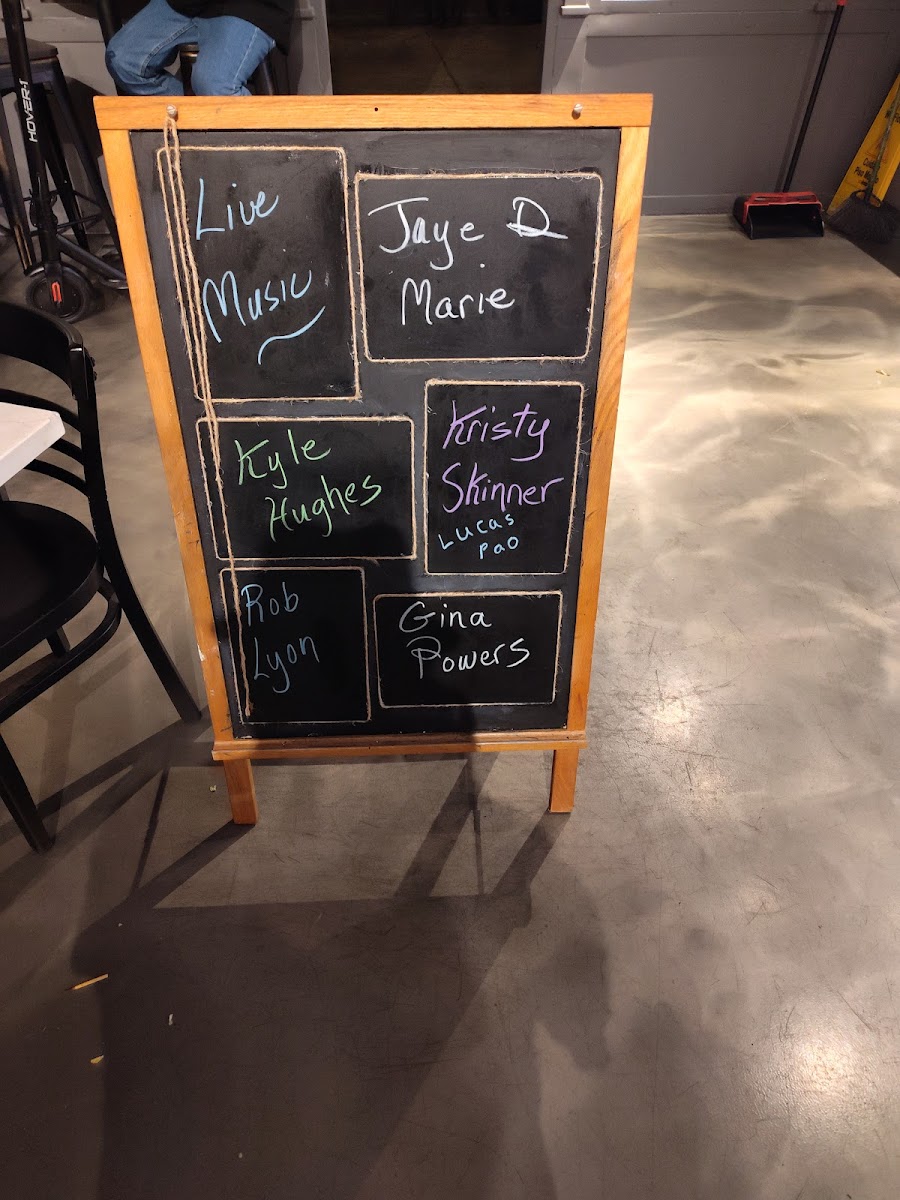 Live
Music
Jaye D
Marie
Kyle
Hughes
Kristy
Skinner
Lucas
Pao
Rob
Lyon
Gina
Powers
HOVER-1